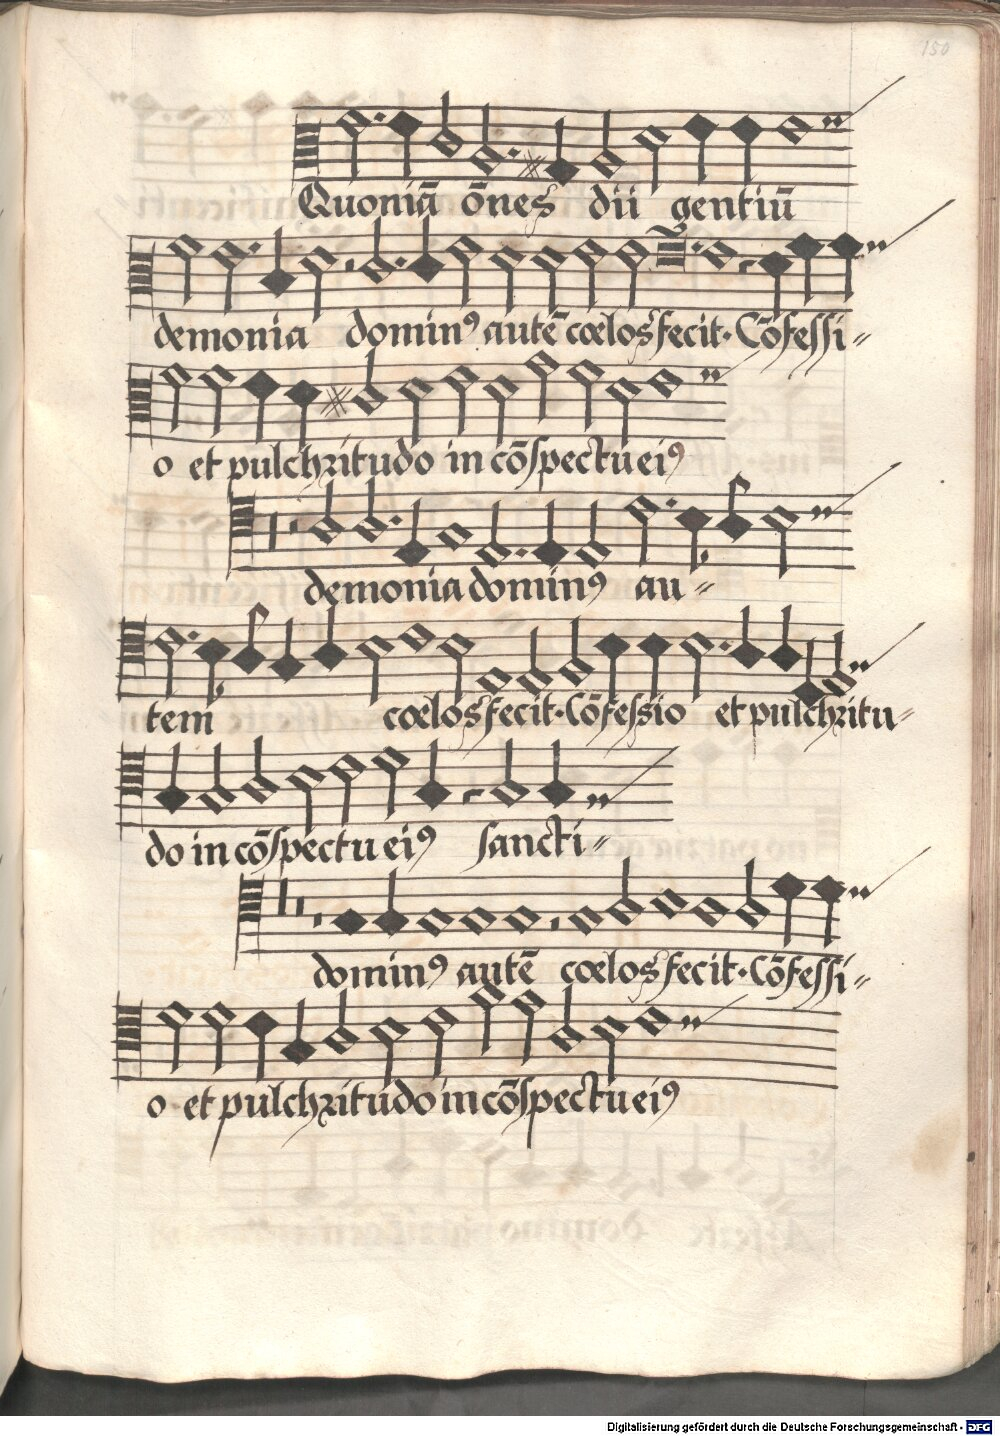 150
Quoniā ōnes dii gentiū
demonia dominꝰ autē cœlos fecit· Cōfessi〃
o et pulchritudo in cōspectu eiꝰ
demonia dominꝰ au〃
tem cœlos fecit· Cōfessio et pulchritu〃
do in cōspectu eiꝰ sancti〃
dominꝰ autē cœlos fecit· Cōfessi〃
o et pulchritudo in cōspectu eiꝰ
Digitalisierung gefördert durch die Deutsche Forschungsgemeinschaft - DFG